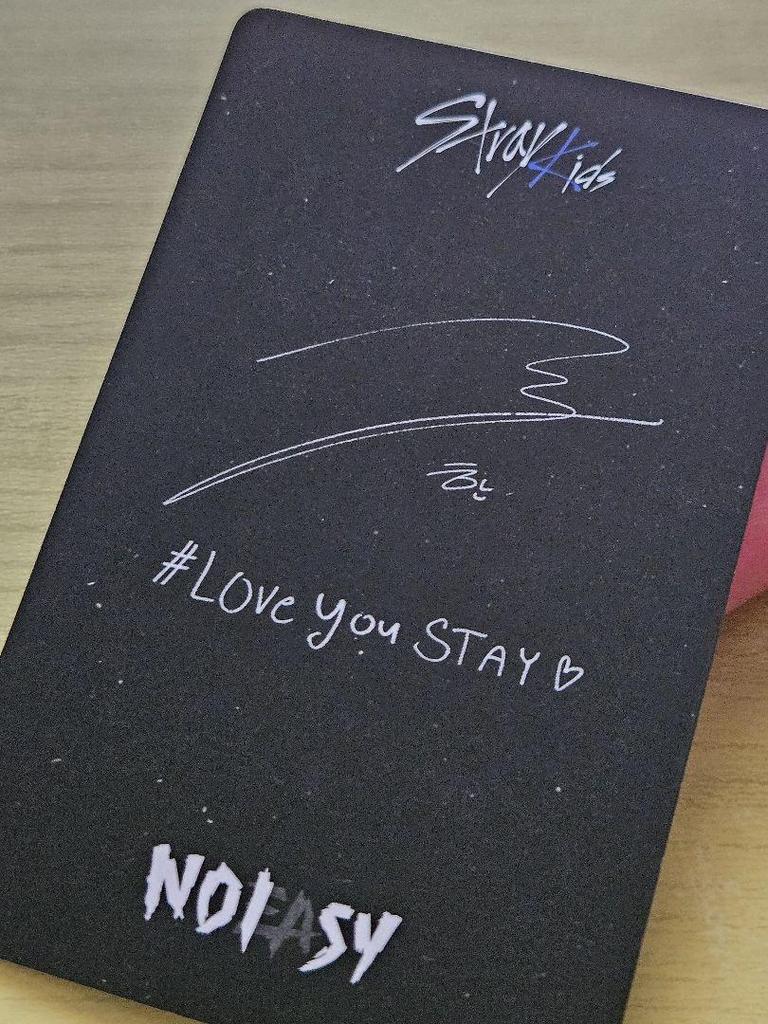 Stray Kids
한
#Love you STAY♡
NOIEASY